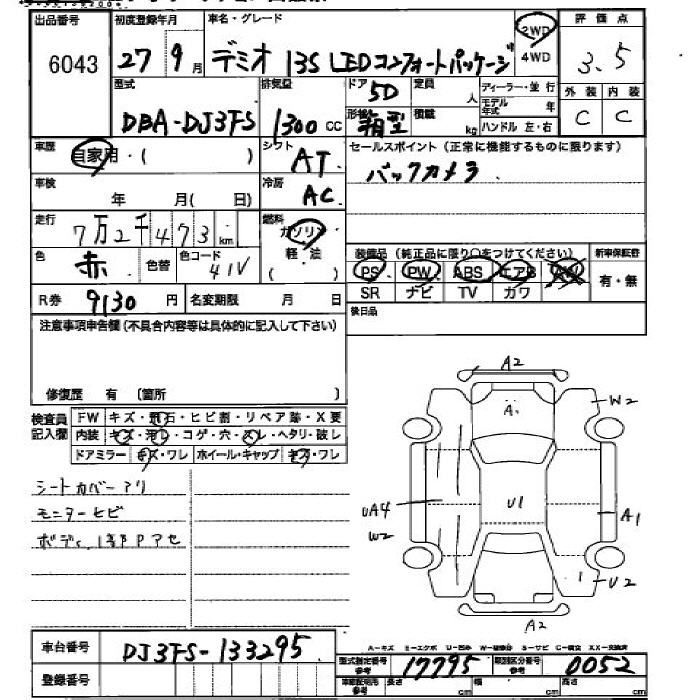 出品番号 初度登録年月 車名・グレード 2WD 4WD 評価点
6043 27 9月 デミオ 13S LEDコンフォートパッケージ 3.5
型式 排気量 ドア 5D 定員 人 ディーラー・並行 外装 内装
DBA-DJ3FS 1300cc 形状 箱型 積載 kg モデル年式 年 C C
ハンドル 左・右
車歴 自家用・( ) シフト AT セールスポイント (正常に機能するものに限ります)
車検 年 月( 日) 冷房 AC バックカメラ
走行 7万2千473km 燃料 ガソリン 軽油 ( )
色 赤 色替 色コード 41V
装備品 (純正品に限り○をつけてください) 新車保証書
PS PW ABS エアB AW 有・無
SR ナビ TV カワ
R券 9130円 名変期限 月 日 後日品
注意事項申告欄(不具合内容等は具体的に記入して下さい)
修復歴 有 〔箇所 〕
検査員記入欄 FW キズ・飛石・ヒビ割・リペア跡・X要
内装 キズ・汚レ・コゲ・穴・スレ・ヘタリ・破レ
ドアミラー キズ・ワレ ホイール・キャップ キズ・ワレ
シートカバーアリ
モニターヒビ
A2
A.
W2
UA4
W2
U1
A1
U2
A2
車台番号 DJ3FS-133295
登録番号
A-キズ E-エクボ U-凹み
型式指定番号 参考 17795 類別区分番号 参考 0052
長さ cm 幅 cm 高さ cm